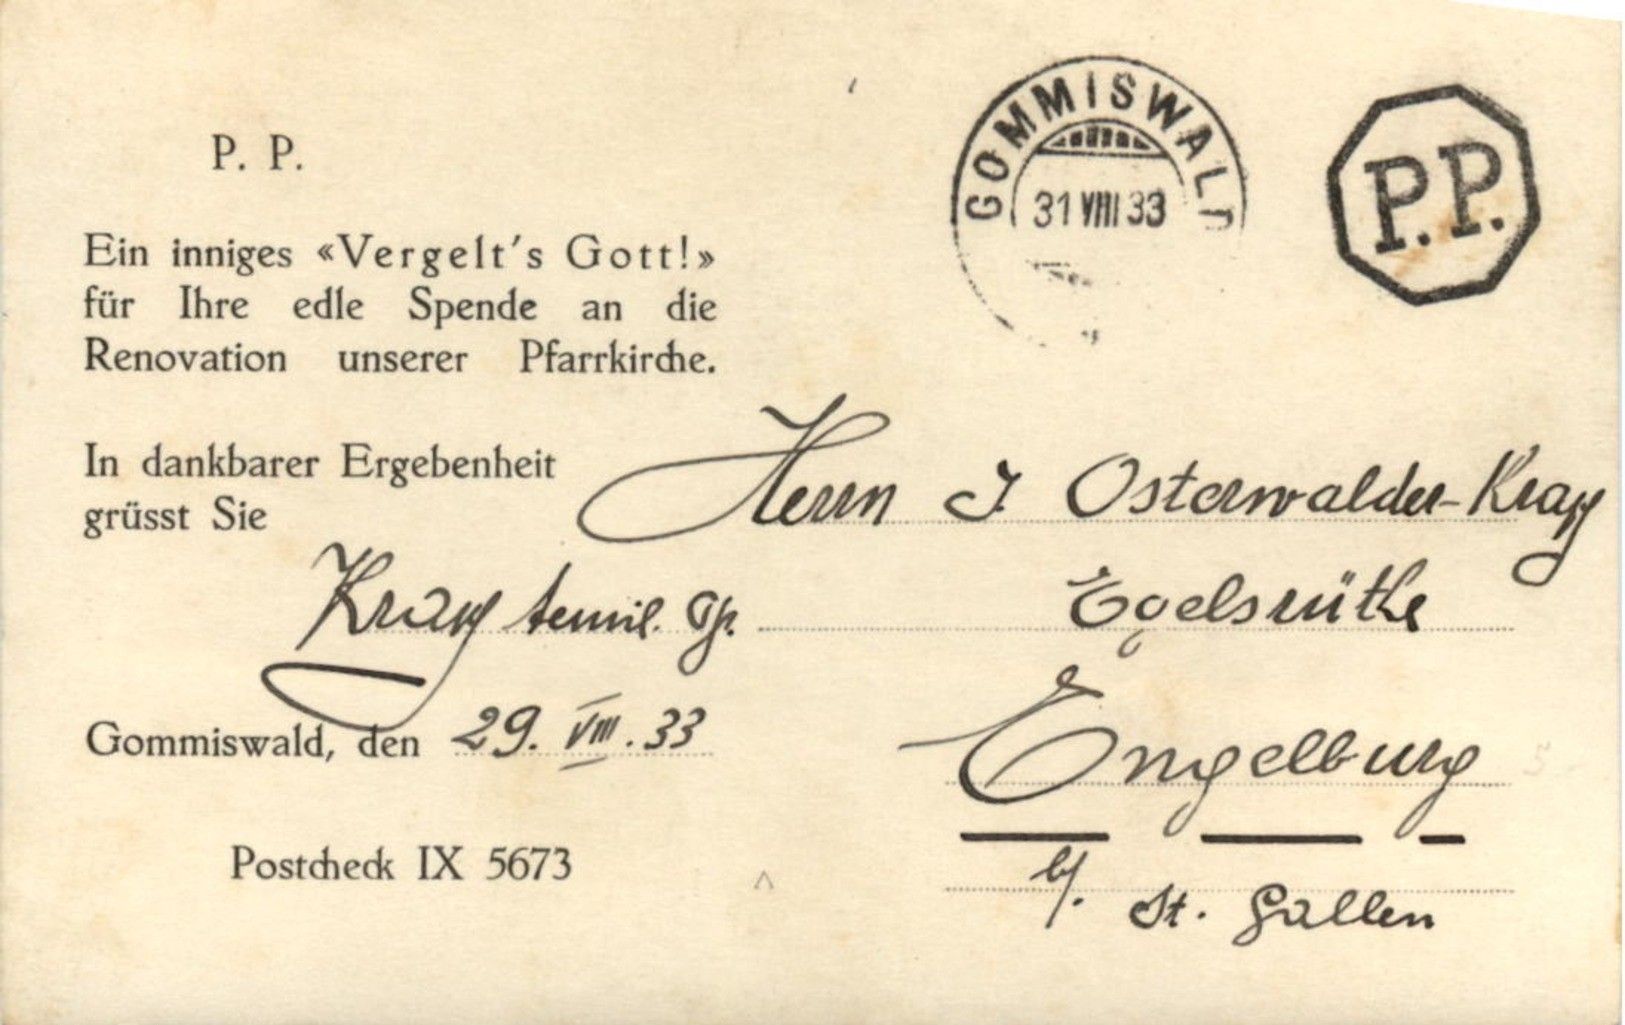 P. P.
Ein inniges «Vergelt's Gott!»
für Ihre edle Spende an die
Renovation unserer Pfarrkirche.
In dankbarer Ergebenheit
grüsst Sie
Gommiswald, den 29. VIII. 33
Postcheck IX 5673
GOMMISWALD
31 VIII 33
P.P.
Herrn J. Osterwalder-Krapf
Egelsrüthe
Engelburg
b/. St. Gallen